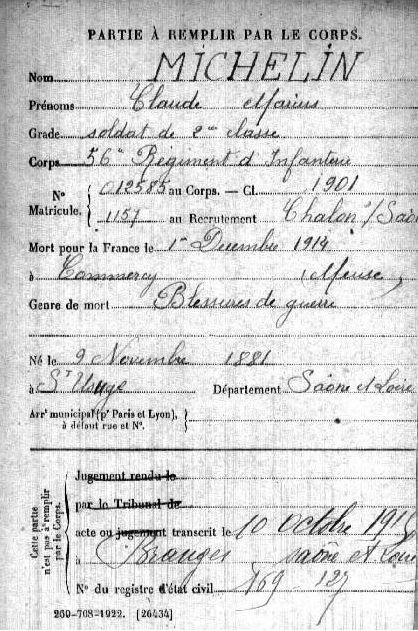 PARTIE À REMPLIR PAR LE CORPS.
Nom MICHELIN
Prénoms Claude Marius
Grade soldat de 2me classe
Corps 56e Régiment d'Infanterie
N° Matricule. { 012585 au Corps. — Cl. 1901
1157 au Recrutement Chalon s/Saône
Mort pour la France le 1er Décembre 1914
à Commercy (Meuse)
Genre de mort Blessures de guerre
Né le 9 Novembre 1881
à St Usuge Département Saône et Loire
Arrt municipal (pr Paris et Lyon), à défaut rue et N°. {
Cette partie n'est pas à remplir par le Corps.
Jugement rendu le
par le Tribunal de
acte ou jugement transcrit le 10 octobre
à Branges Saône et Loire
N° du registre d'état civil 169 127
269-708-1922. [26434]